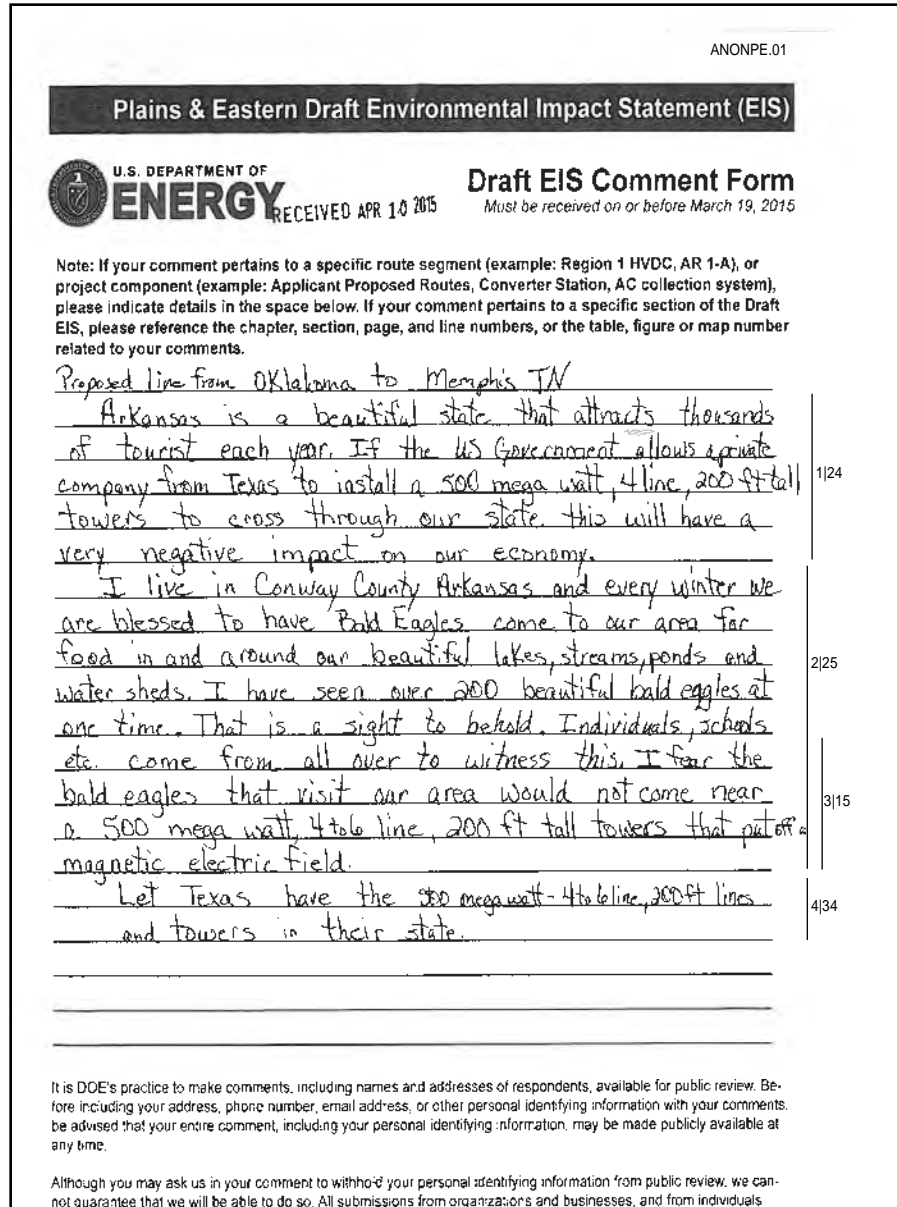 ANONPE.01
Plains & Eastern Draft Environmental Impact Statement (EIS)
U.S. DEPARTMENT OF
ENERGY
RECEIVED APR 10 2015
Draft EIS Comment Form
Must be received on or before March 19, 2015
Note: If your comment pertains to a specific route segment (example: Region 1 HVDC, AR 1-A), or
project component (example: Applicant Proposed Routes, Converter Station, AC collection system),
please indicate details in the space below. If your comment pertains to a specific section of the Draft
EIS, please reference the chapter, section, page, and line numbers, or the table, figure or map number
related to your comments.
Proposed line from OKlahoma to Memphis TN
Arkansas is a beautiful state that attracts thousands
of tourist each year. If the US Government allows a private
company from Texas to install a 500 mega watt, 4 line, 200 ft tall
1|24
towers to cross through our state this will have a
very negative impact on our economy.
I live in Conway County Arkansas and every winter we
are blessed to have Bald Eagles come to our area for
food in and around our beautiful lakes, streams, ponds and
2|25
water sheds. I have seen over 200 beautiful bald eagles at
one time. That is a sight to behold. Individuals, schools
etc. come from all over to witness this. I fear the
bald eagles that visit our area would not come near
3|15
a 500 mega watt, 4 to 6 line, 200 ft tall towers that put off a
magnetic electric field.
Let Texas have the 500 mega watt - 4 to 6 line, 200 ft lines
4|34
and towers in their state.
It is DOE's practice to make comments, including names and addresses of respondents, available for public review. Be-
fore including your address, phone number, email address, or other personal identifying information with your comments,
be advised that your entire comment, including your personal identifying information, may be made publicly available at
any time.
Although you may ask us in your comment to withhold your personal identifying information from public review, we can-
not guarantee that we will be able to do so. All submissions from organizations and businesses, and from individuals